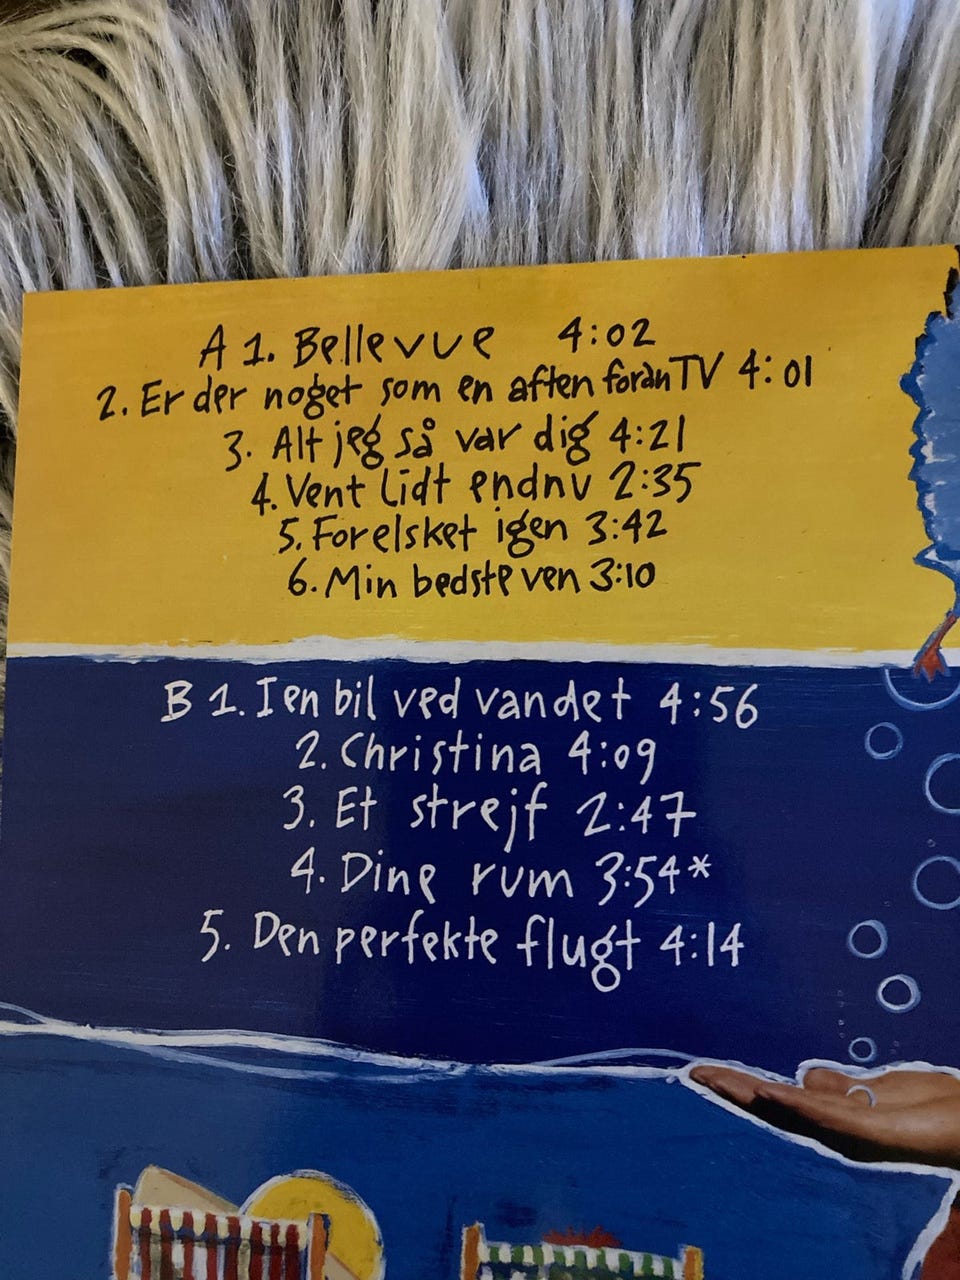 A 1. Bellevue 4:02
2. Er der noget som en aften foran TV 4:01
3. Alt jeg så var dig 4:21
4. Vent lidt endnu 2:35
5. Forelsket igen 3:42
6. Min bedste ven 3:10
B 1. I en bil ved vandet 4:56
2. Christina 4:09
3. Et strejf 2:47
4. Dine rum 3:54*
5. Den perfekte flugt 4:14